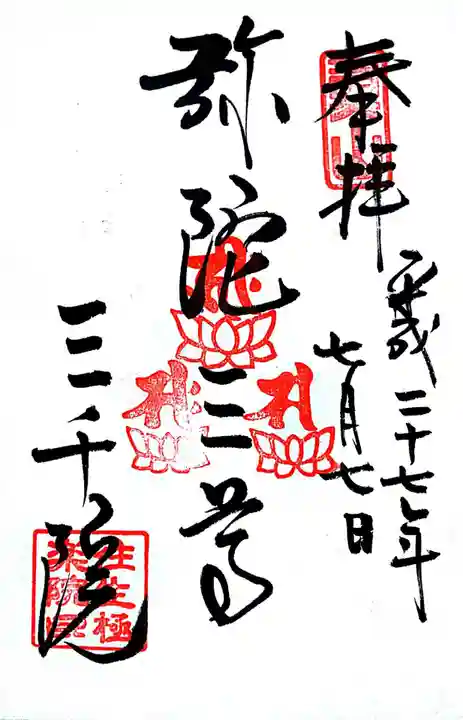 奉拝
平成二十七年
七月七日
弥陀三尊
三千院
往生極
楽院